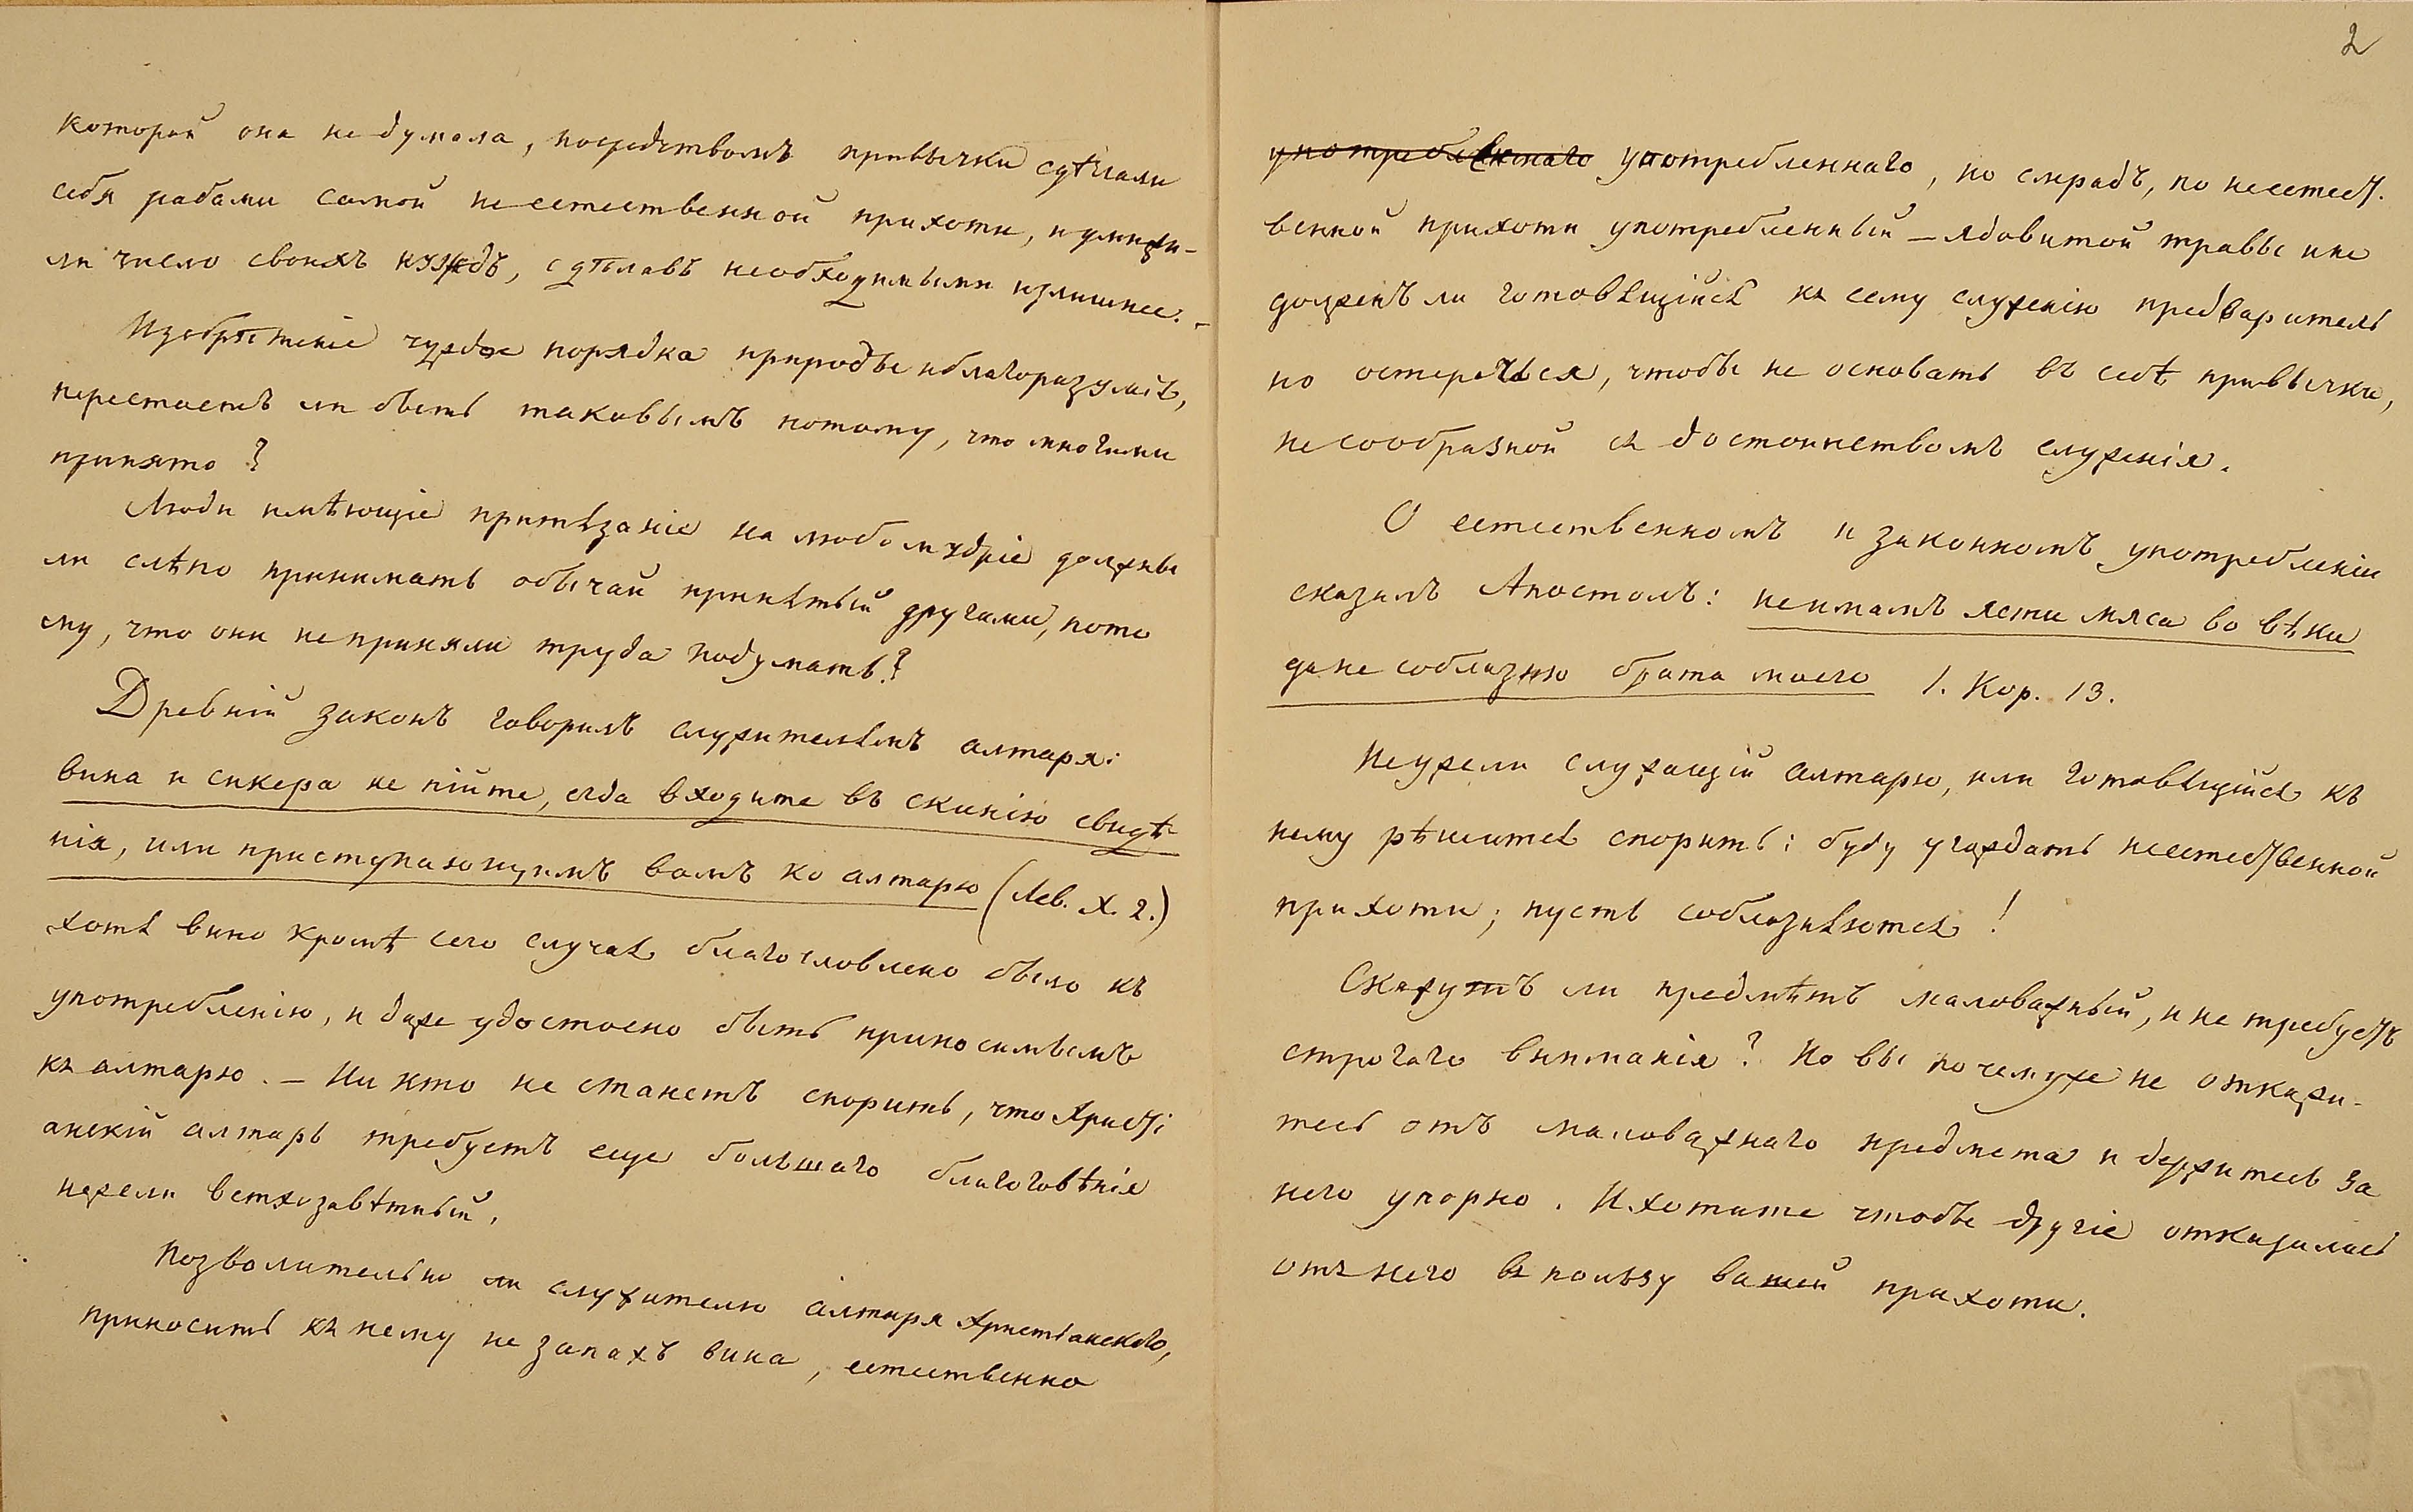 которой она не думала, посредствомъ привычки сдѣлали
себя рабами самой неестественной прихоти, и умножи-
ли число своихъ нуждъ, сдѣлавъ необходимыми излишнее. –
Изобрѣтеніе чуждое порядка природы и благоразумія,
перестаетъ ли быть таковымъ потому, что многими
принято?
Люди имѣющіе притязаніе на любомудріе должны
ли слѣпо принимать обычай принятый другими, пото
му, что они не приняли труда подумать?
Древній законъ говорилъ служителямъ алтаря:
вина и сикера не пійте, егда входите въ скинію свидѣ-
нія, или приступающимъ вамъ ко алтарю (Лев. X. 2.)
хотя вино кромѣ сего случая благословлено было къ
употребленію, и даже удостоено быть приносимымъ
къ алтарю. – Ни кто не станетъ спорить, что Христі
анскій алтарь требуетъ еще большаго благоговѣнія
нежели ветхозавѣтный.
Позволительно ли служителю алтаря Христіанскаго,
приносить къ нему не запахъ вина, естественно
2
употребленнаго употребленнаго, но смрадъ, по неестест.
венной прихоти употребленный – ядовитой травы и не
долженъ ли готовящійся къ сему служенію предваритель
но остеречься, чтобы не основать въ себѣ привычки,
несообразной съ достоинствомъ служенія.
О естественномъ и законномъ употребленіи
сказалъ Апостолъ: не имамъ ясти мяса во вѣки
да не соблазню брата моего 1. Кор. 13.
Неужели служащій алтарю, или готовящійся къ
нему рѣшится спорить: буду угождать неестественной
прихоти; пусть соблазняются!
Скажутъ ли предмѣтъ маловажный, и не требуетъ
строгаго вниманія? Но вы почемуже не откажи-
тесь отъ маловажнаго предмета и держитесь за
него упорно. И хотите чтобы другіе отказались
отъ него въ пользу вашей прихоти.